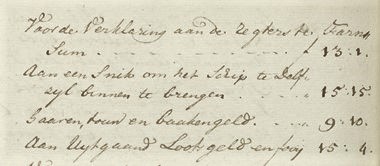 Voor de Verklaring aan de Regters te Farm
Sum - - - - - - - 13:1.
Aan een Snik om het Schip te Delf
zyl binnen te brengen - - - 15:15.
baaren, touw en baakengeld. - - 9:10.
Aan Uytgaand Lootsgeld en fooy 15:4.